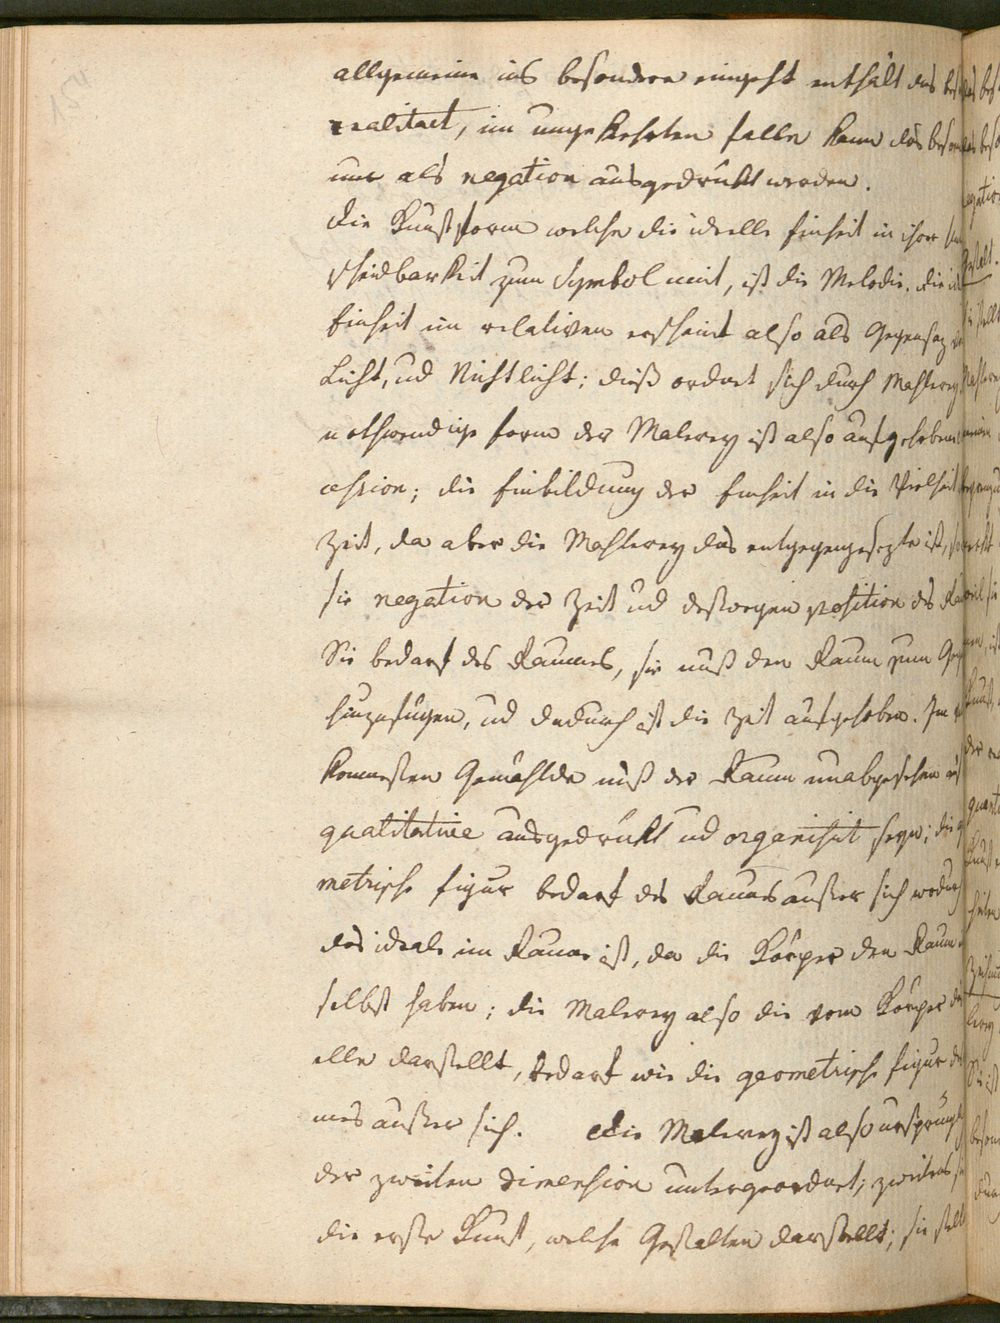 allgemeine ins besondere eingeht enthält das bes
realitaet, im umgekehrten falle kann das beson
nur als negation ausgedrükt werden.
die Kunstform welche die ideelle Einheit in ihrer Un
scheidbarkeit zum Symbol nimt, ist die Melodie. die id
Einheit im relativen erscheint also als Gegensaz von
Licht, und Nichtlicht; dieß ordnet sich durch Mahlerey.
nothwendige form der Malerey ist also aufgehobene
cession; die Einbildung der Einheit in die Vielheit
Zeit, da aber die Mahlerey das entgegengesezte ist, so
sie negation der Zeit und deswegen position des Rau
Sie bedarf des Raumes, sie muß den Raum zum Geg
hinzufügen, und dadurch ist die Zeit aufgehoben. Im
kommesten Gemählde muß der Raum unabgesehen auf
qualitative ausgedrükt und organisirt seyn; die g
metrische figur bedarf des Raumes außer sich wodurch
das ideale im Raume ist, da die Körper den Raum
selbst haben; die Malerey also die vom Körper das
elle darstellt, bedarf wie die geometrische figur des
mes außer sich. Die Malerey ist also ursprüngl
der zweiten dimension untergeordnet; zweitens
die erste Kunst, welche Gestalten darstellt; sie stellt